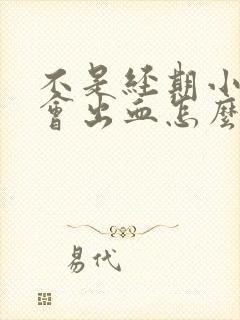 不是經期小
會出血怎麼
易代